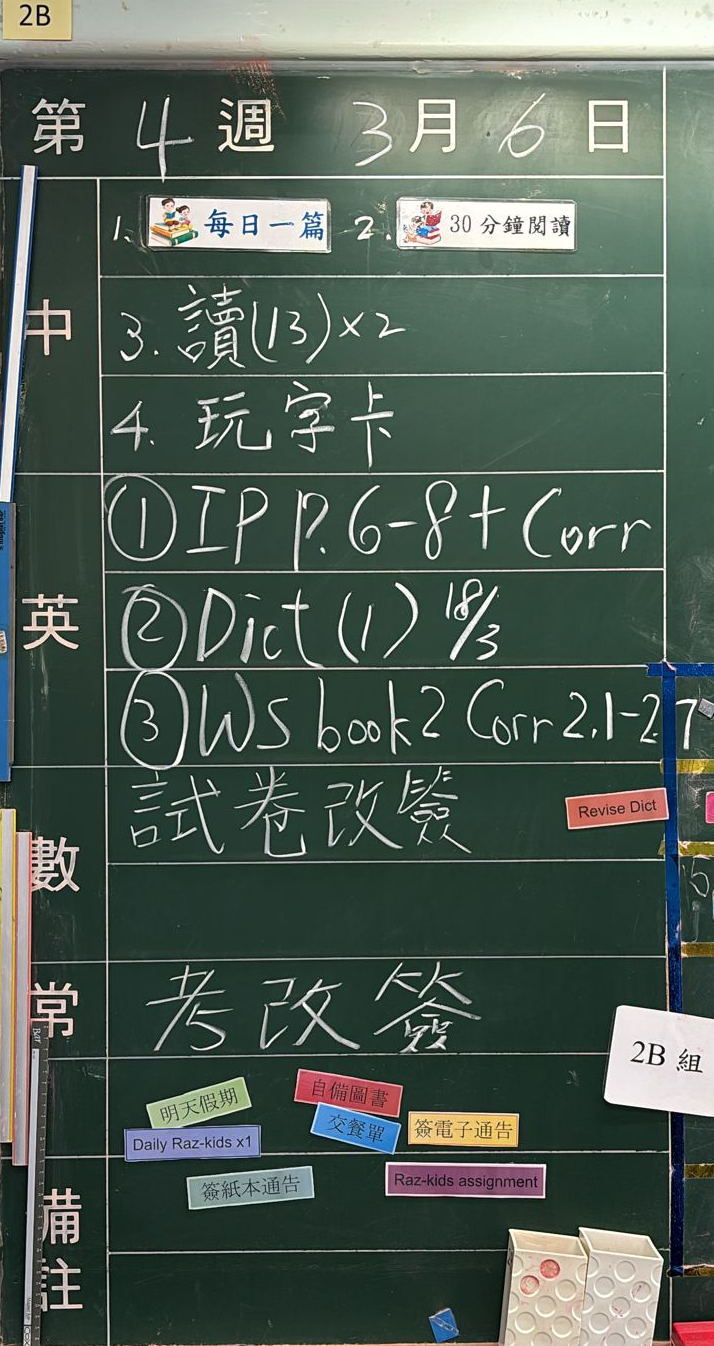 2B
第 4 週 3 月 6 日
中
1. 每日一篇 2. 30 分鐘閱讀
3. 讀(13)×2
4. 玩字卡
英
① IP P. 6-8 + Corr
② Dict (1) 18/3
③ WS book 2 Corr 2.1-2.7
數
試卷改簽
Revise Dict
常
考改簽
2B 組
明天假期
自備圖書
Daily Raz-kids x1
交餐單
簽電子通告
備註
簽紙本通告
Raz-kids assignment